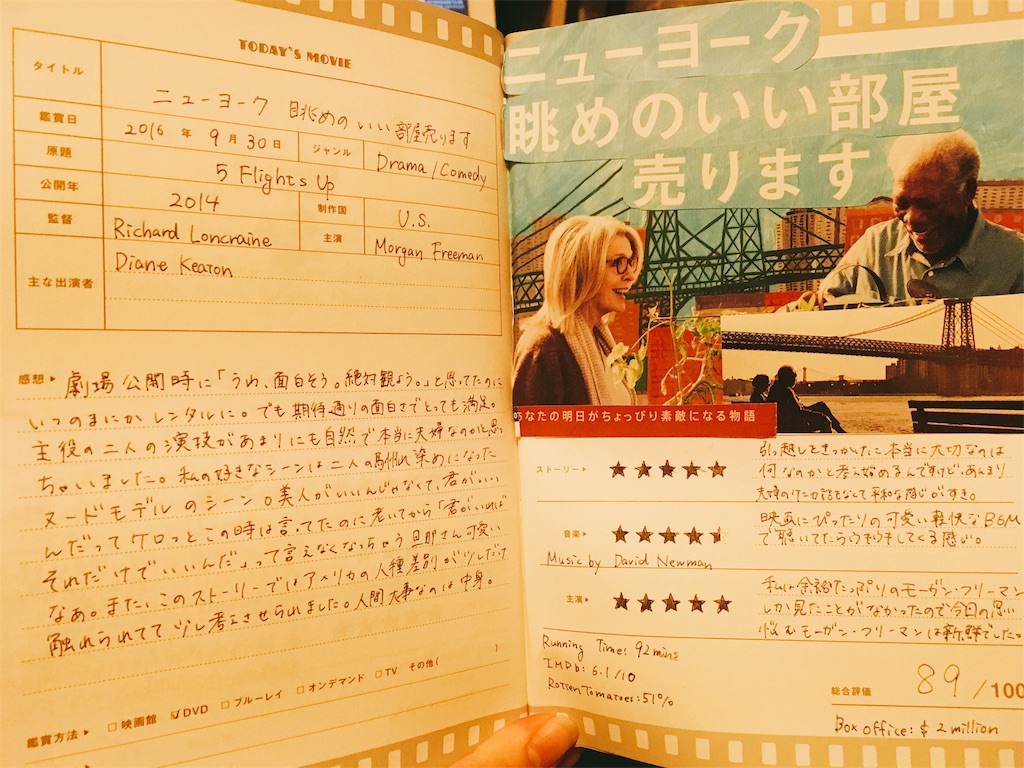 TODAY'S MOVIE
タイトル
ニューヨーク 眺めの いい部屋売ります
鑑賞日 2016 年 9 月 30 日 ジャンル Drama/Comedy
原題 5 Flights Up
公開年 2014 制作国 U.S.
監督 Richard Loncraine 主演 Morgan Freeman
主な出演者 Diane Keaton
感想 劇場公開時に「うわ、面白そう。絶対観よう。」と思ってたのに
いつのまにかレンタルに。でも期待通りの面白さでとっても満足。
主役の二人の演技があまりにも自然で本当に夫婦なのかと思っ
ちゃいました。私の好きなシーンは二人の馴れ染めになった
ヌードモデルのシーン。美人がいいんじゃなくて、君がいい
んだってケロっとこの時は言ってたのに老いてから「君がいれば
それだけでいいんだ」って言えなくなっちゃう旦那さん可愛い
なぁ。また、このストーリーではアメリカの人種差別が少しだけ
触れられてて少し考えさせられました。人間大事なのは中身。
鑑賞方法 映画館 DVD ブルーレイ オンデマンド TV その他( )
ニューヨーク
眺めのいい部屋
売ります
あなたの明日がちょっぴり素敵になる物語
ストーリー ★★★★★
引越しをきっかけに本当に大切なのは
何なのかと考え始めるんですけど、あんまり
夫婦のケンカ話もなくて平和な感じがすき。
音楽 ★★★★★
映画にぴったりの可愛い軽快なBGM
で聴いててうきうきしてくる感じ。
Music by David Newman
主演 ★★★★★
私は余裕たっぷりのモーガン・フリーマン
しか見たことがなかったので今回の思い
悩むモーガン・フリーマンは新鮮でした。
Running Time: 92mins
IMDb: 6.1/10
Rotten Tomatoes: 51%
総合評価 89/100
Box office: $ 2 million